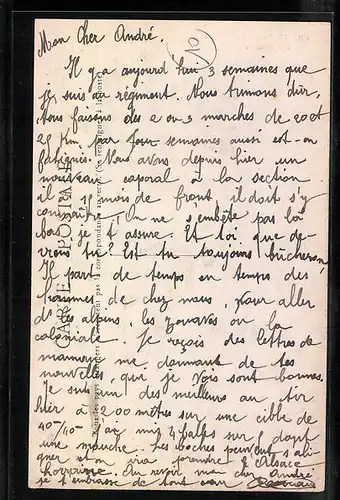 Mon Cher André,
Il y a aujourd hui 3 semaines que
je suis au régiment. Nous turnons dur,
nous faisons des 2 ou 3 marches de 20 et
25 Km. par semaines aussi est-on
fatigués. Nous avons depuis hier un
nouveau caporal à la section
il a mois de front il doit s'y
connaitre. On ne s'embête pas là
bas je t'assure. Et toi que de-
viens tu? Est tu toujours bûcheron?
Il part de temps en temps des
hommes de chez nous, pour aller
d les alpins, les zouaves ou la
coloniale. Je reçois des lettres de
maman me donnant de tes
nouvelles, qui je vois sont bonnes.
Je suis un des meilleurs au tir
hier à 200 mètres sur une cible de
40 j'ai mis 4 balles sur dont
une mouche. Les boches peuvent s'ali-
gner et prendre l'Alsace
Lorraine. Au revoir mon cher André
je t'embrasse de tout cœur
CARTE POSTALE